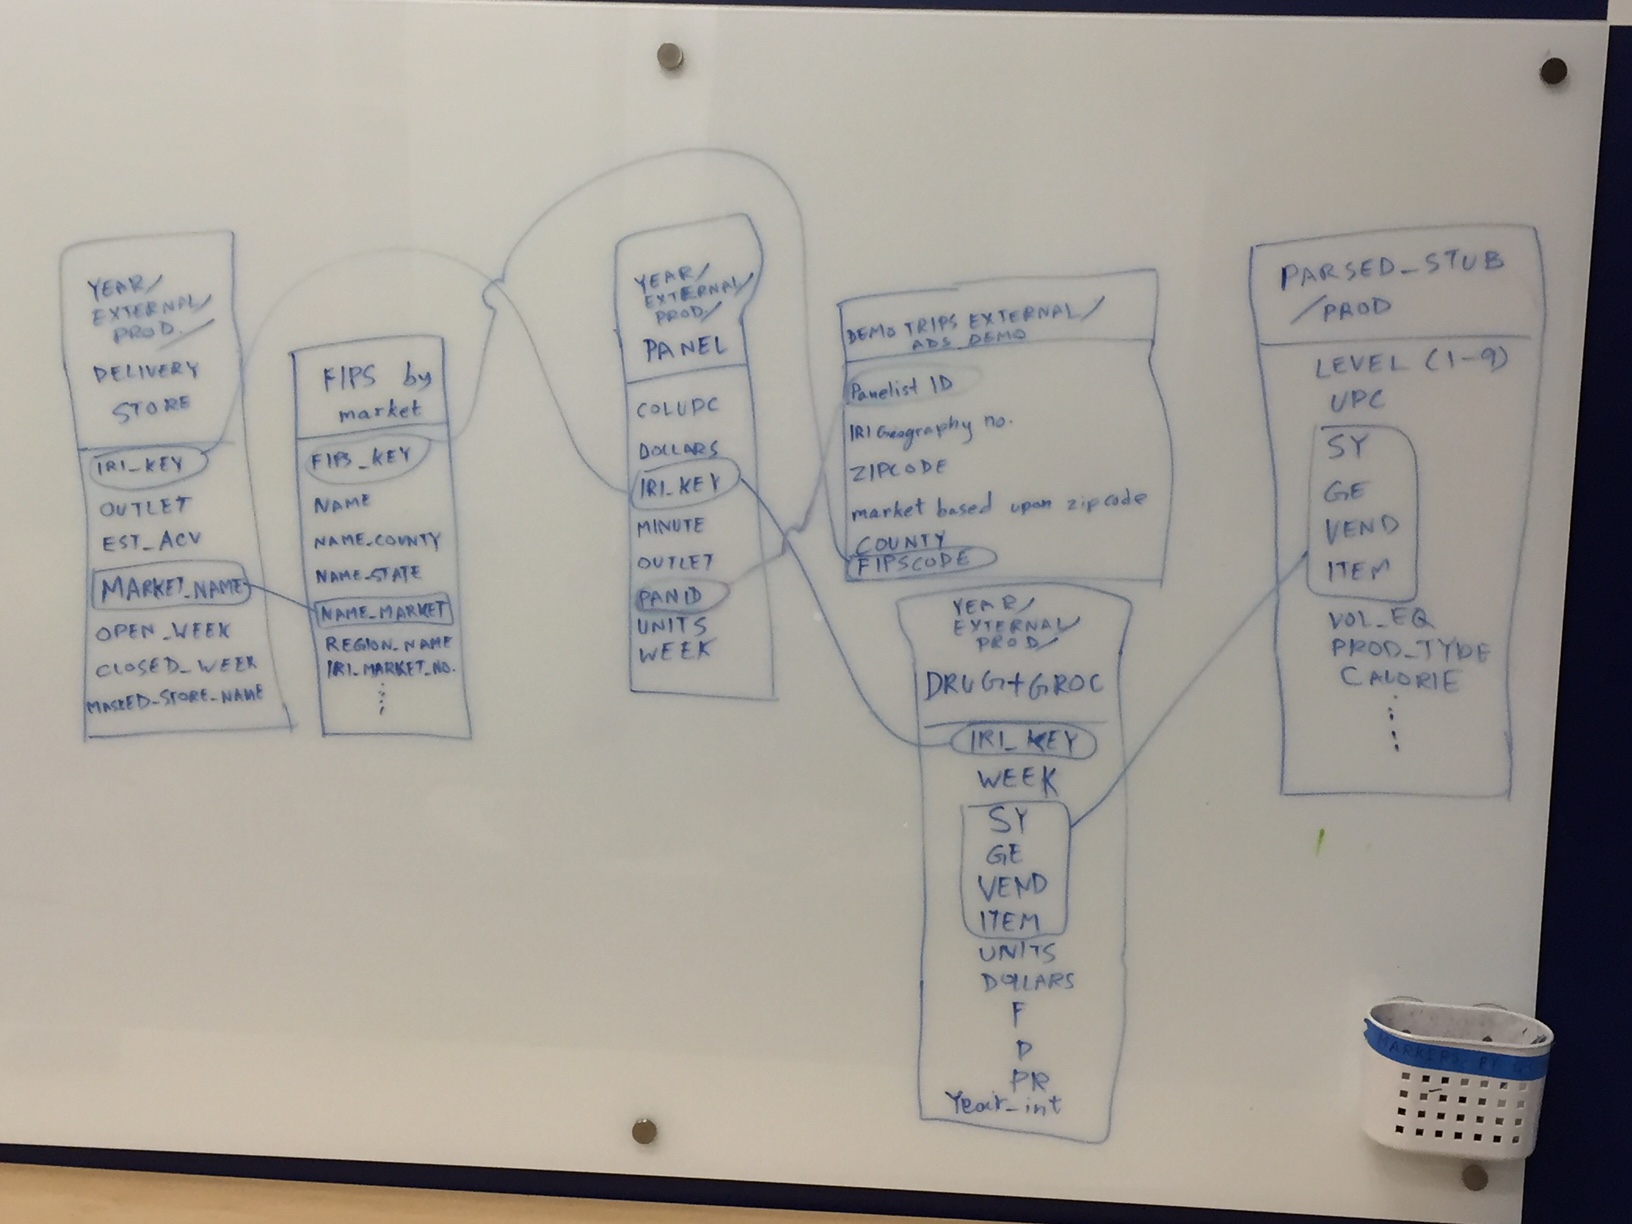 YEAR/
EXTERNAL/
PROD./
DELIVERY
STORE
IRI_KEY
OUTLET
EST_ACV
MARKET_NAME
OPEN_WEEK
CLOSED_WEEK
MASKED_STORE_NAME
FIPS by
market
FIPS_KEY
NAME
NAME_COUNTY
NAME_STATE
NAME_MARKET
REGION_NAME
IRI_MARKET_NO.
YEAR/
EXTERNAL/
PROD/
PANEL
COLUPC
DOLLARS
IRI_KEY
MINUTE
OUTLET
PANID
UNITS
WEEK
DEMO TRIPS EXTERNAL/
ADS DEMO
Panelist ID
IRI Geography no.
ZIPCODE
market based upon zipcode
COUNTY
FIPSCODE
YEAR/
EXTERNAL/
PROD/
DRUG+GROC
IRI_KEY
WEEK
SY
GE
VEND
ITEM
UNITS
DOLLARS
F
D
PR
Year_int
PARSED_STUB
/PROD
LEVEL (1-9)
UPC
SY
GE
VEND
ITEM
VOL_EQ
PROD_TYPE
CALORIE
MARKERS